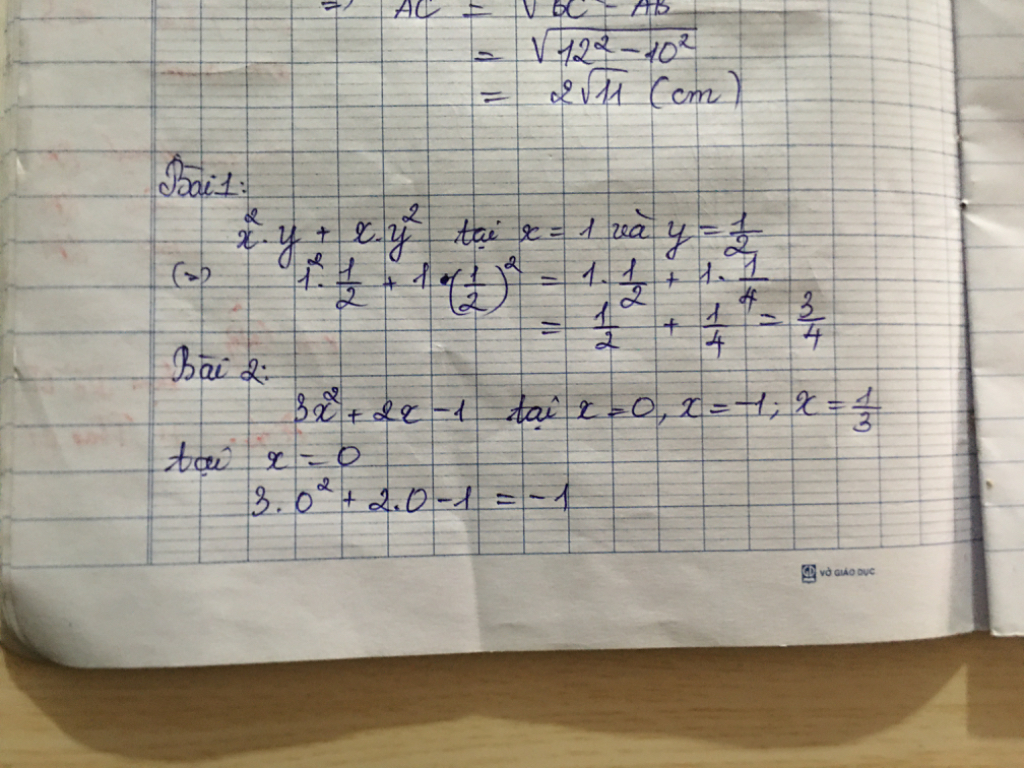 => AC = √BC - AB
= √12² - 10²
= 2√11 (cm)
Bài 1:
x².y + x.y² tại x = 1 và y = 1/2
(=) 1².1/2 + 1.(1/2)² = 1.1/2 + 1.1/4
= 1/2 + 1/4 = 3/4
Bài 2:
3x² + 2x - 1 tại x = 0, x = -1; x = 1/3
tại x = 0
3.0² + 2.0 - 1 = -1
VỞ GIÁO DỤC